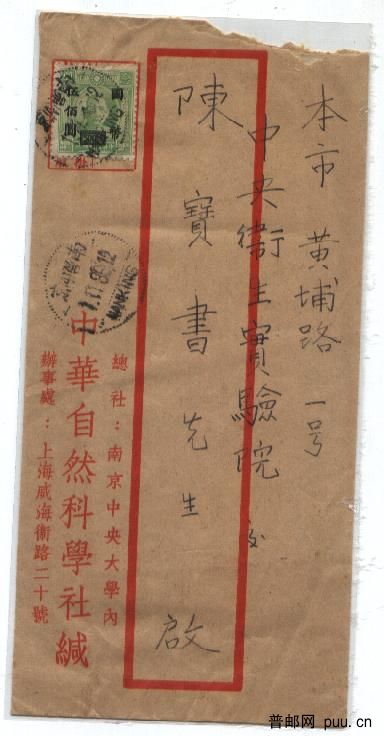 本市黃埔路一号
中央衞生實驗院
陳寶書先生啟
總社：南京中央大學內
中華自然科學社緘
辦事處：上海威海衛路二十號
NANKING
普邮网 puu.cn